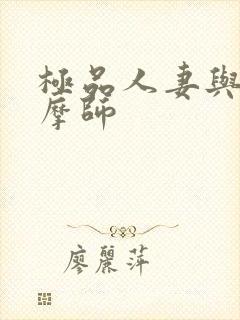 極品人妻與
摩師
廖麗萍